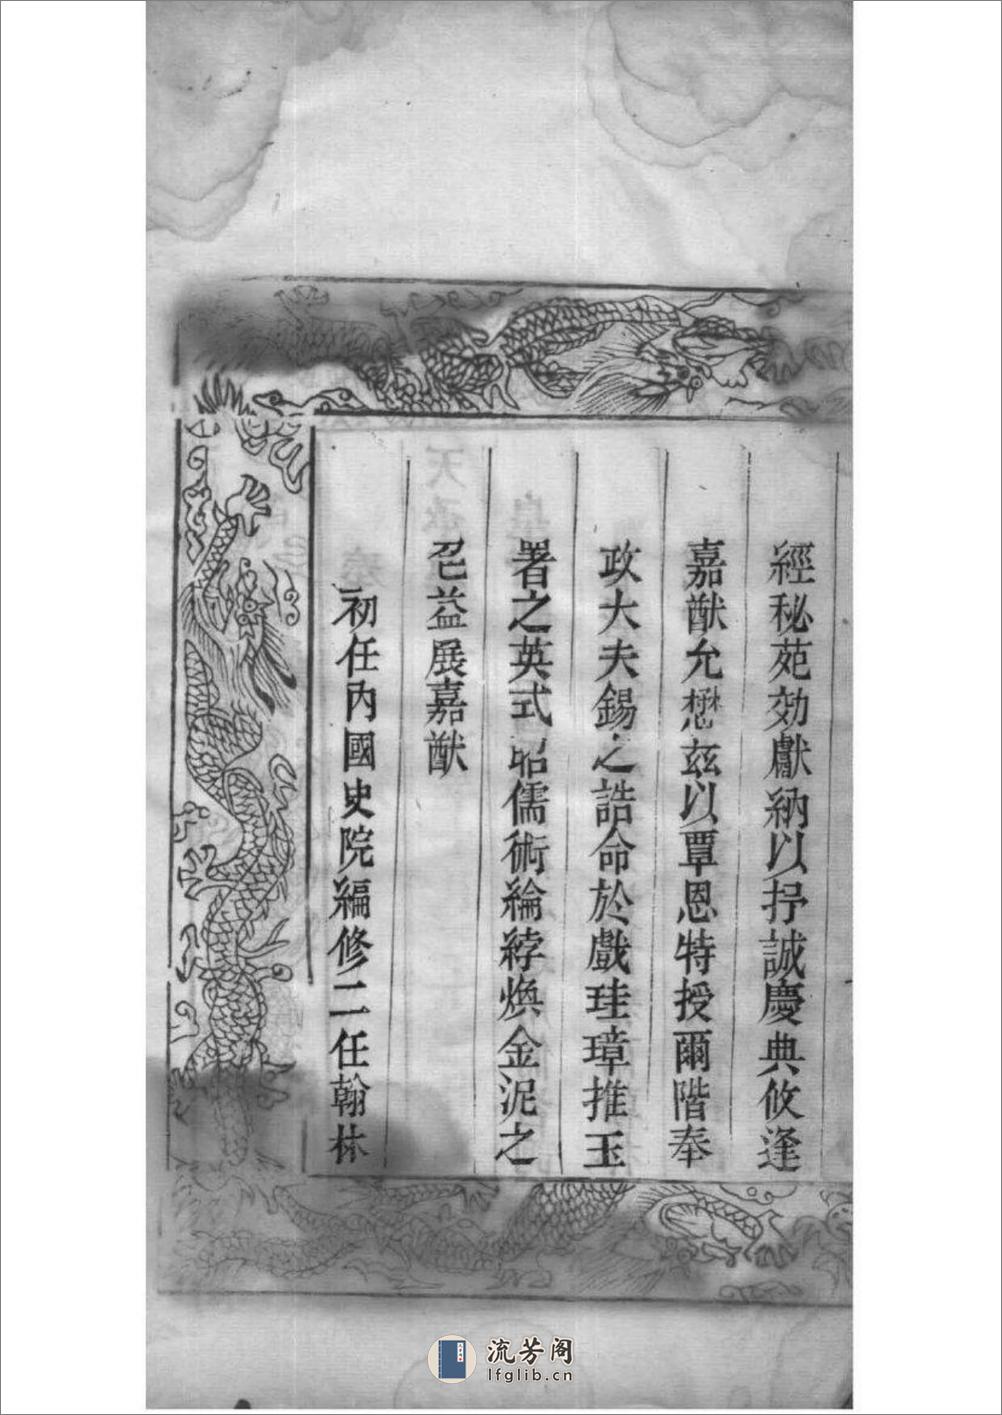 經秘苑効獻納以抒誠慶典攸逢
嘉猷允懋玆以覃恩特授爾階奉
政大夫錫之誥命於戲珪璋推玉
署之英式昭儒術綸綍煥金泥之
色益展嘉猷
初任內國史院編修二任翰林
流芳阁
lfglib.cn